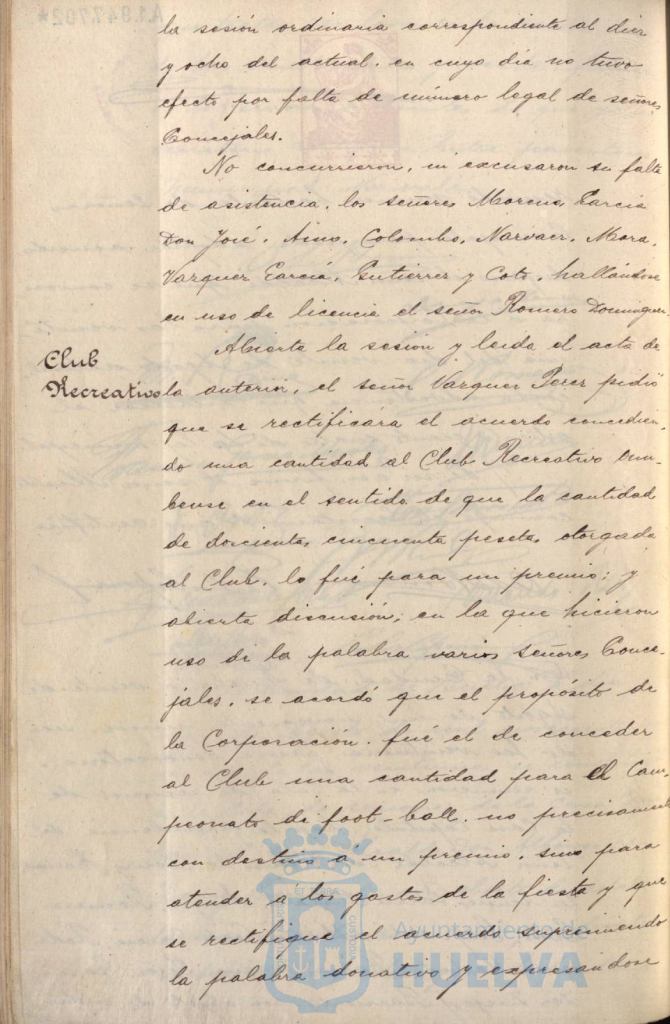 A1.947702*
la sesión ordinaria correspondiente al diez
y ocho del actual, en cuyo dia no tuvo
efecto por falta de número legal de señores
Concejales.
No concurrieron, ni excusaron su falta
de asistencia, los señores Moreno Garcia
Don José, Colombo, Narvaez, Mora,
Vazquez García, Gutierrez y Coto, hallándose
en uso de licencia el señor Romero Dominguez.
Abierta la sesión y leida el acta de
Club
Recreativo
la anterior, el señor Vazquez Perez pidió
que se rectificára el acuerdo concedien-
do una cantidad al Club Recreativo Onu-
bense en el sentido de que la cantidad
de doscientas cincuenta pesetas otorgada
al Club, lo fué para un premio; y
abierta discusión, en la que hicieron
uso de la palabra varios señores Conce-
jales, se acordó que el propósito de
la Corporación, fué el de conceder
al Club una cantidad para el Cam-
peonato de foot-ball, no precisamente
con destino á un premio, sino para
atender a los gastos de la fiesta y que
se rectifique el acuerdo suprimiendo
la palabra donativo y expresandose
Ayuntamiento de
HUELVA